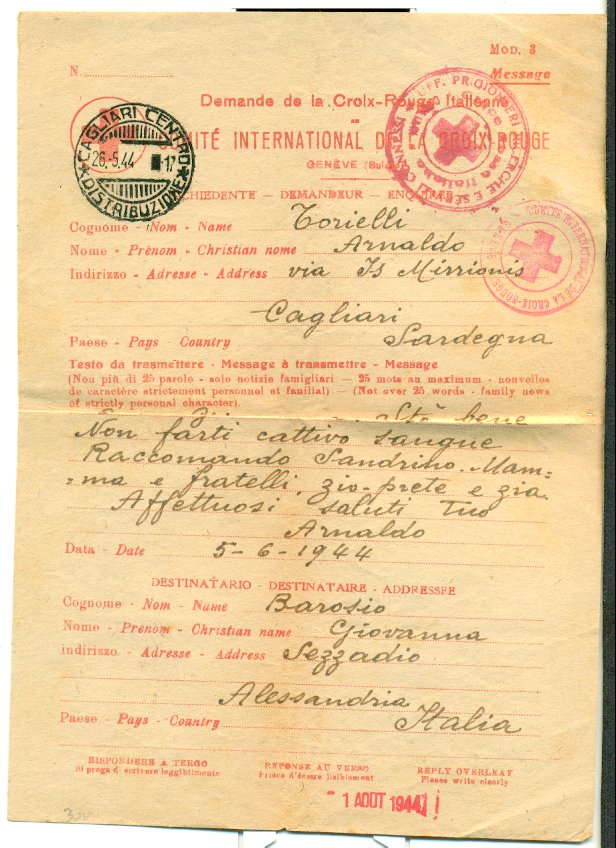 MOD. 3
N.
Message
Demande de la Croix-Rouge Italienne
COMITÉ INTERNATIONAL DE LA CROIX-ROUGE
GENÈVE
CAGLIARI CENTRO
26.5.44 17
DISTRIBUZIONE
UFF. PRIGIONIERI
COMITÉ INTERNATIONAL DE LA CROIX-ROUGE
DEMANDEUR —
Cognome - Nom - Name Torielli
Nome - Prénom - Christian name Arnaldo
Indirizzo - Adresse - Address via Is Mirrionis
Cagliari
Paese - Pays - Country Sardegna
Testo da trasmettere - Message à transmettre - Message
(Non più di 25 parole - solo notizie famigliari — 25 mots au maximum - nouvelles
de caractère strictement personnel et familial) — (Not over 25 words - family news
of strictly personal character).
Stò bene
Non farti cattivo sangue
Raccomando Sandrino. Mam=
=ma e fratelli, zio prete e zia.
Affettuosi saluti tuo
Arnaldo
Data - Date 5-6-1944
DESTINATARIO - DESTINATAIRE - ADDRESSEE
Cognome - Nom - Name Barosio
Nome - Prénom - Christian name Giovanna
indirizzo - Adresse - Address Sezzadio
Alessandria
Paese - Pays - Country Italia
RISPONDERE A TERGO REPONSE AU VERSO REPLY OVERLEAF
Si prega di scrivere leggibilmente Prière d'écrire lisiblement Please write clearly
- 1 AOUT 1944
300